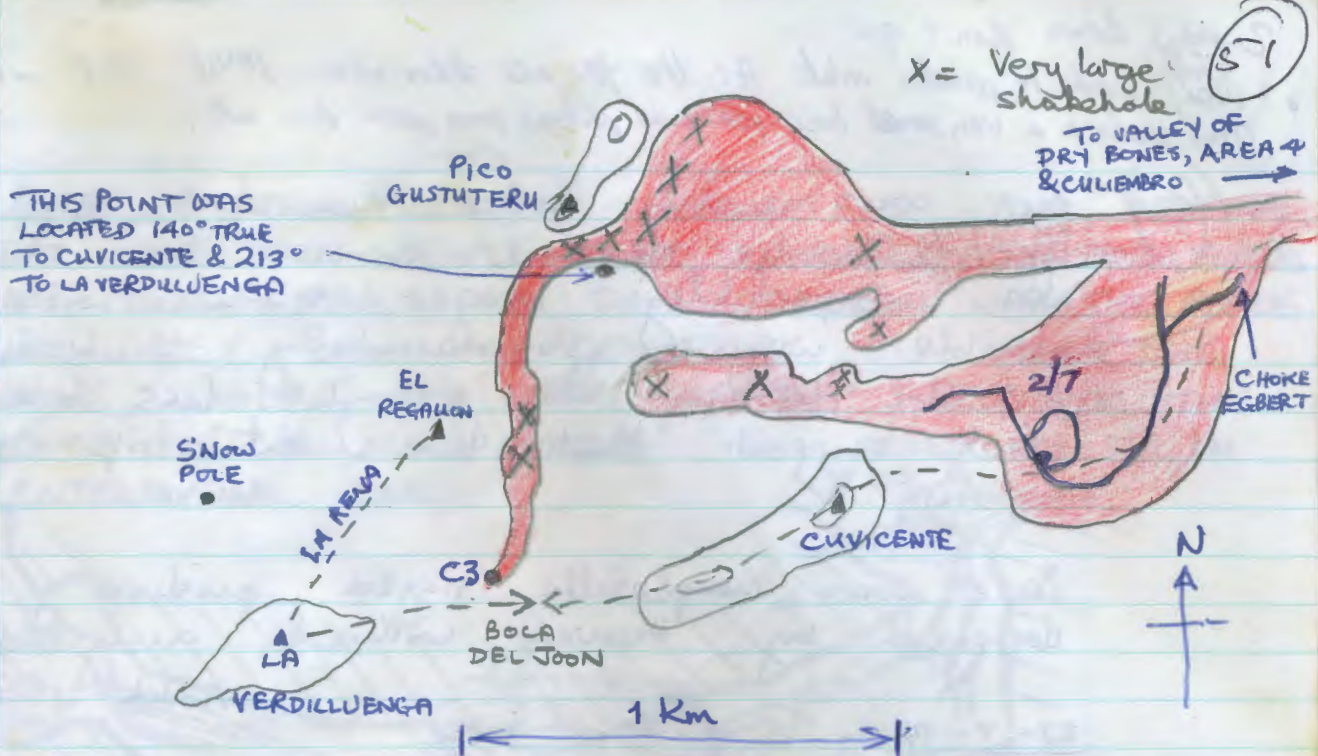 X = Very large
shakehole
51
TO VALLEY OF
DRY BONES, AREA 4
& CULIEMBRO
PICO
GUSTUTERU
THIS POINT WAS
LOCATED 140° TRUE
TO CUVICENTE & 213°
TO LA VERDILLUENGA
EL
REGALLON
SNOW
POLE
LA RENA
2/7
CHOKE
EGBERT
C3
CUVICENTE
N
BOCA
DEL JOON
LA
VERDILLUENGA
1 Km